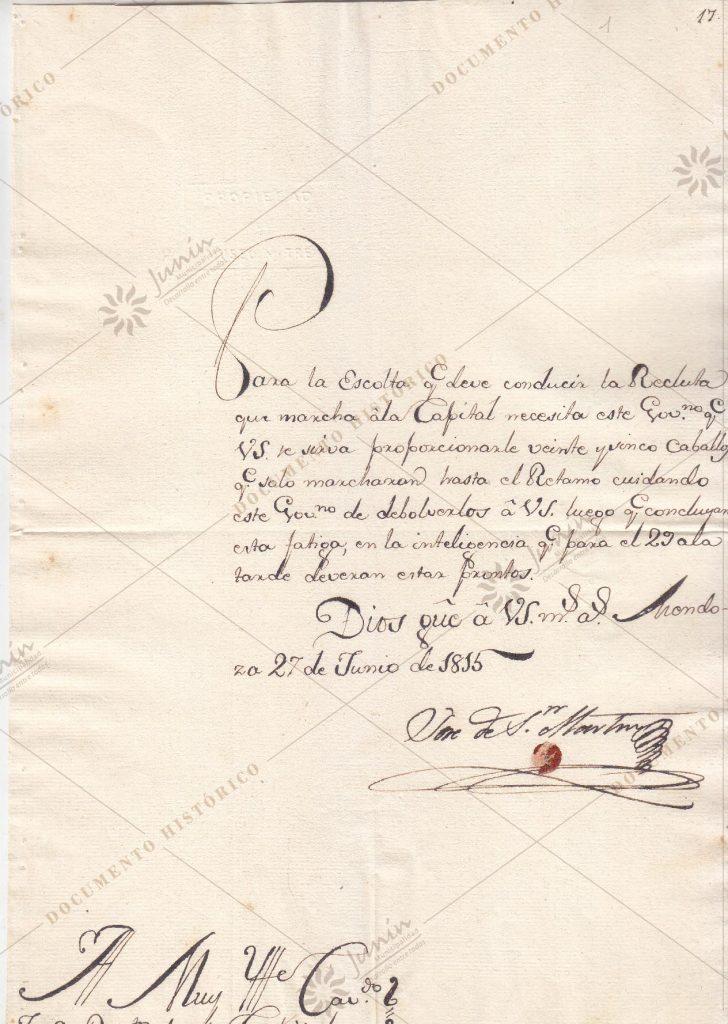 17.
1
Para la Escolta q.e deve conducir la Recluta
que marcha âla Capital necesita este Gov.no q.e
VS. se sirva proporcionarle veinte y sinco Caballo
q.e solo marcharan hasta el Retamo cuidando
este Gov.no de debolverlos â VS. luego q.e concluyan
esta fatiga, en la inteligencia q.e para el 29 ala
tarde deveran estar prontos.
Dios gûe â VS. m.s a.s Mendo-
za 27 de Junio de 1815
Jose de S.n Martin
Al Muy Ylle Cav.do
DOCUMENTO HISTÓRICO
Junín
Municipalidad
Desarrollo entre todos
PROPIEDAD